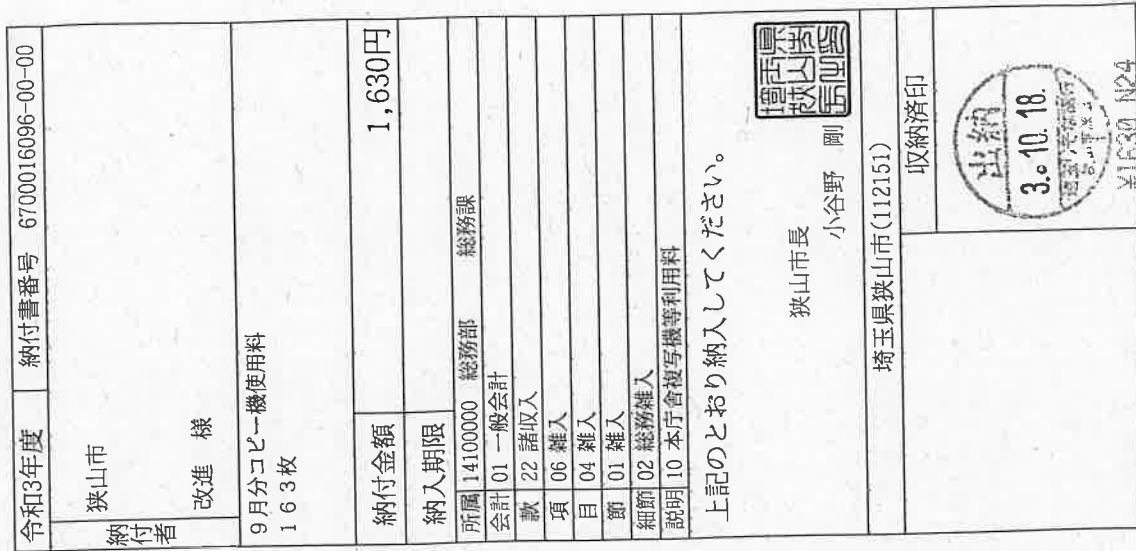 令和3年度 納付書番号 67000016096-00-00
納付者
狭山市
改進 様
9月分コピー機使用料
163枚
納付金額 1,630円
納入期限
所属 14100000 総務部 総務課
会計 01 一般会計
款 22 諸収入
項 06 雑入
目 04 雑入
節 01 雑入
細節 02 総務雑入
説明 10 本庁舎複写機等利用料
上記のとおり納入してください。
狭山市長
小谷野 剛
埼玉県狭山市長之印
埼玉県狭山市(112151)
収納済印
出納
3.10.18.
¥1630 N24